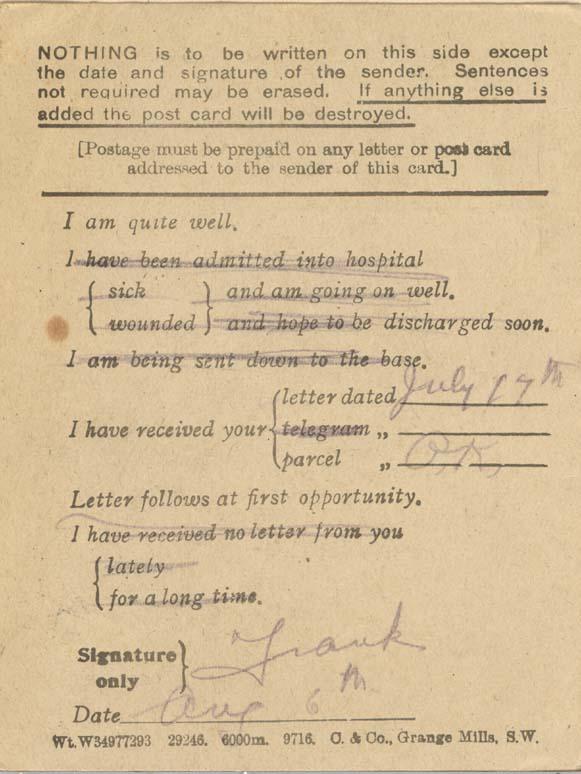 NOTHING is to be written on this side except
the date and signature of the sender. Sentences
not required may be erased. If anything else is
added the post card will be destroyed.
[Postage must be prepaid on any letter or post card
addressed to the sender of this card.]
I am quite well.
I have been admitted into hospital
sick and am going on well.
wounded and hope to be discharged soon.
I am being sent down to the base.
letter dated July 17th
I have received your telegram „
parcel „ O.K.
Letter follows at first opportunity.
I have received no letter from you
lately
for a long time.
Signature
only
Frank
Date Aug 6th
Wt.W34977293 29246. 6000m. 9716. C. & Co., Grange Mills, S.W.